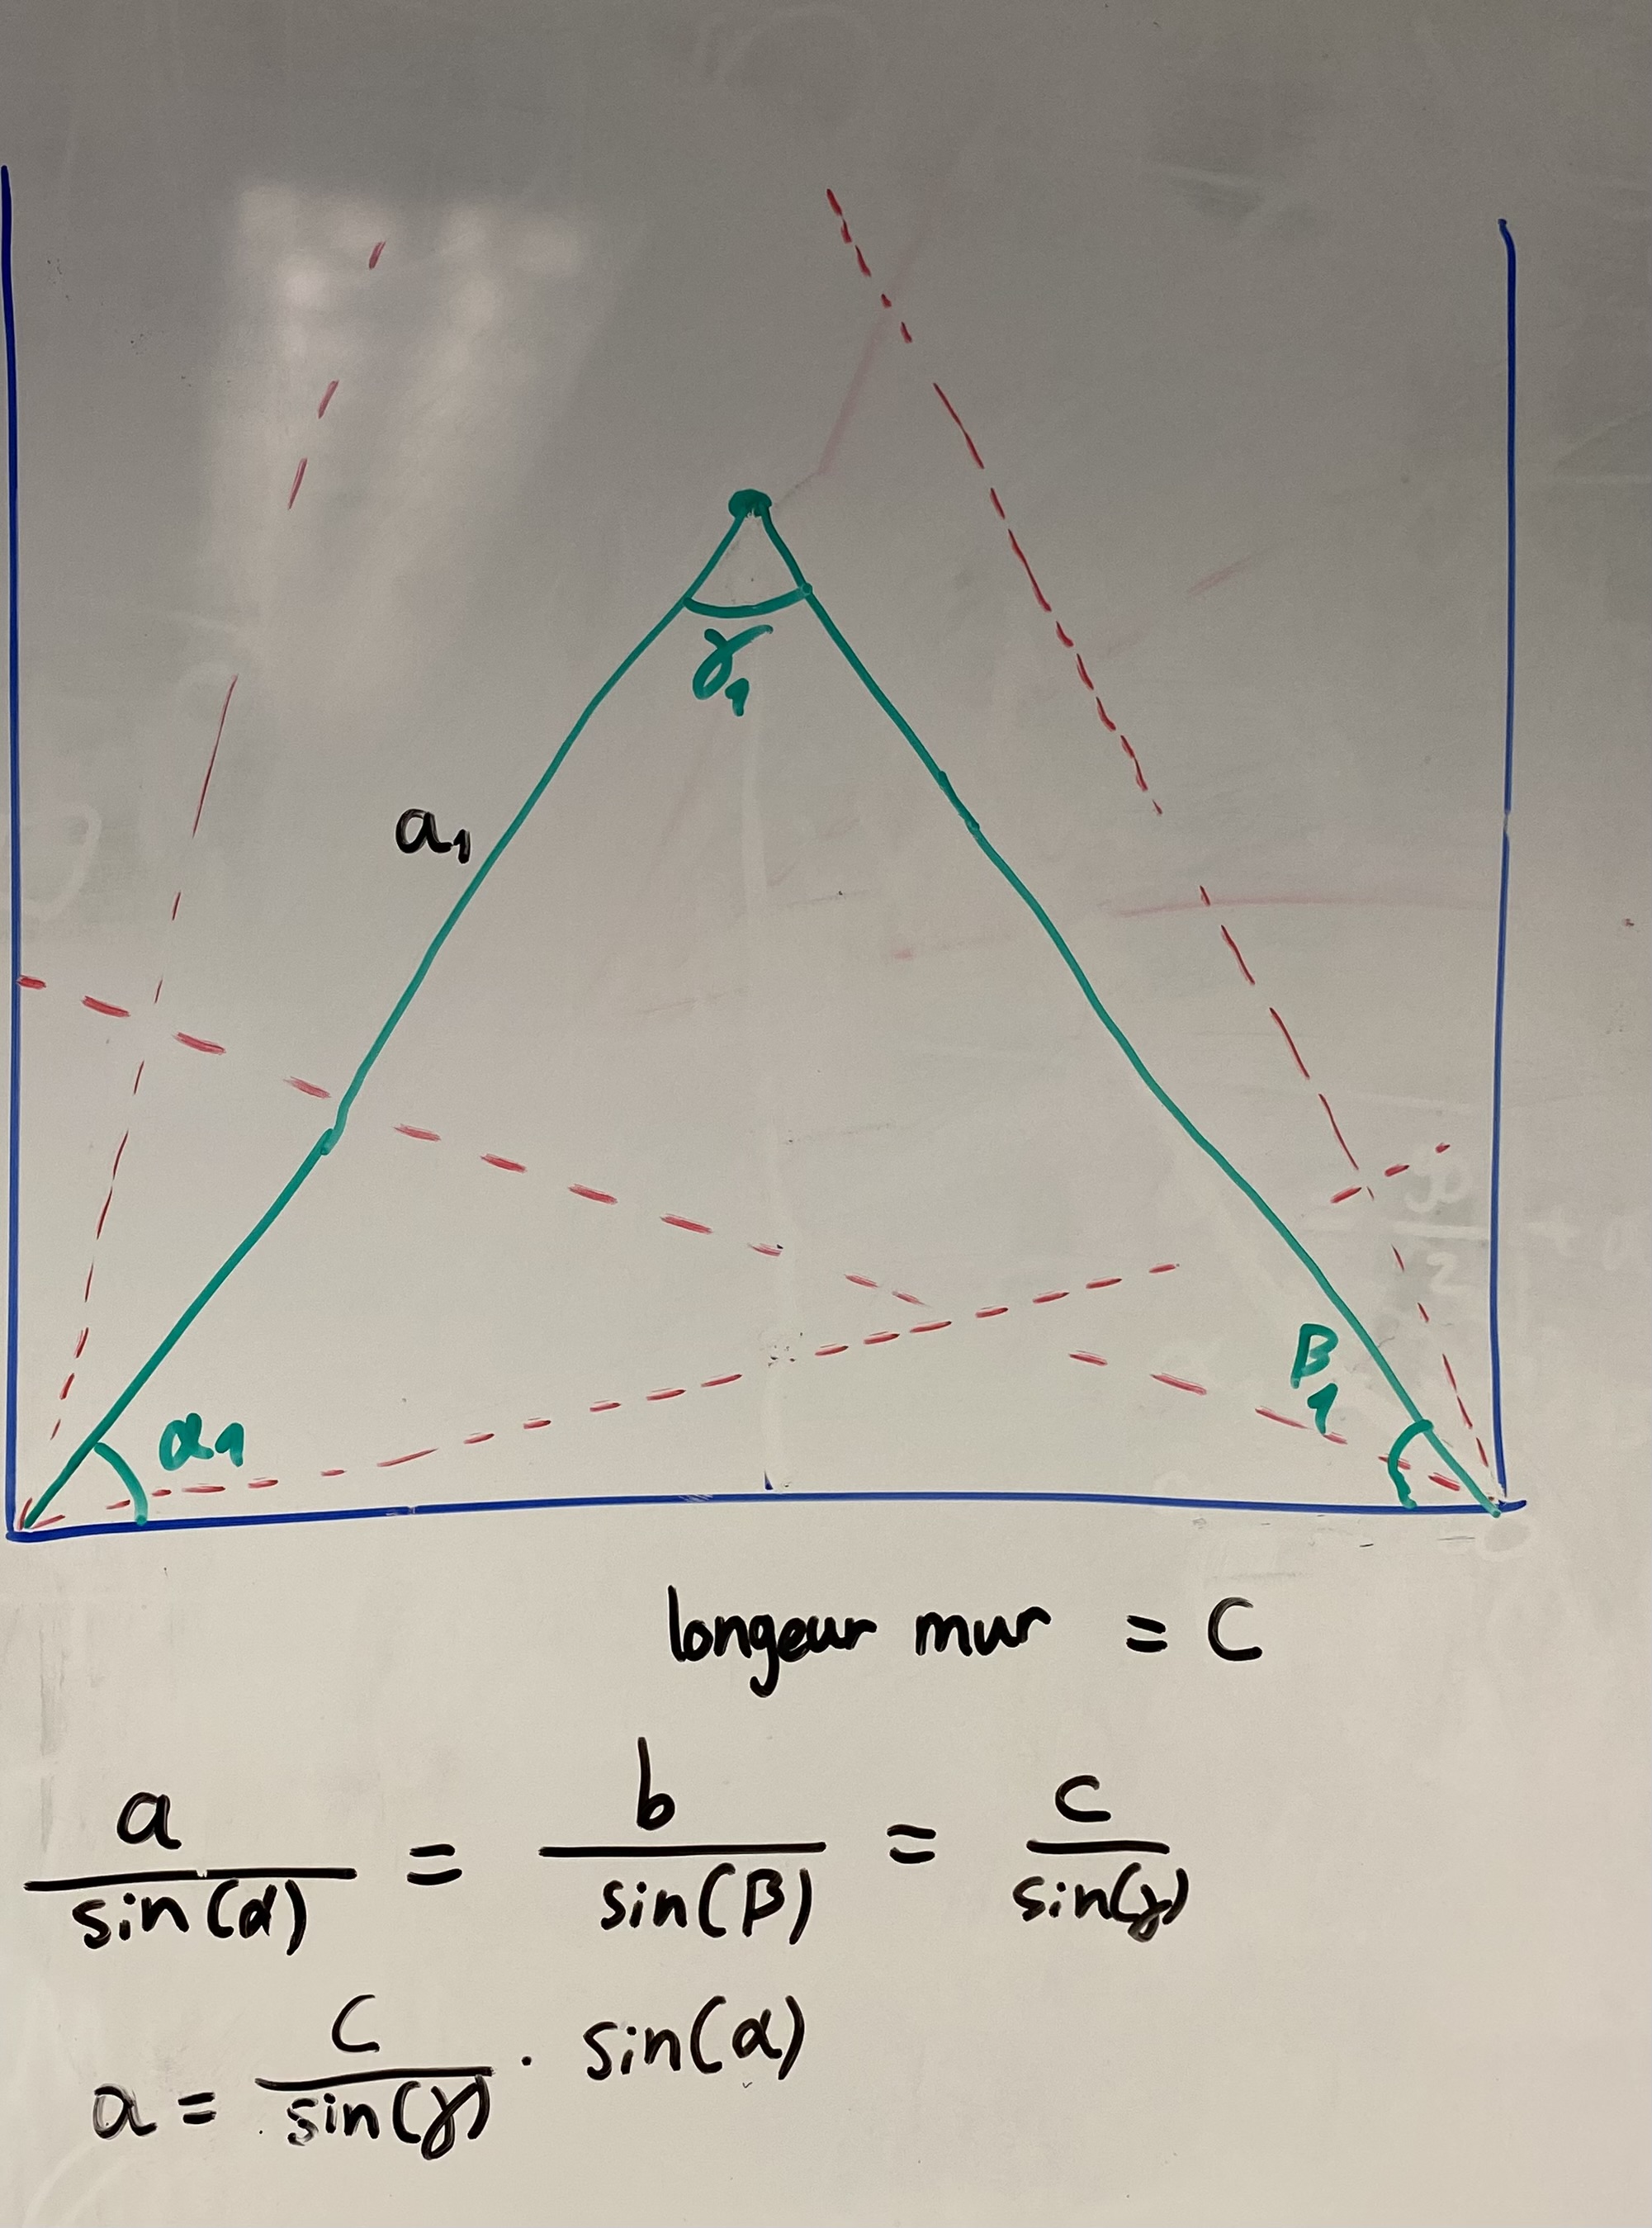 γ₁
a₁
β₁
α₁
longeur mur = C
a/sin(α) = b/sin(β) = c/sin(γ)
a = C/sin(γ) · sin(α)